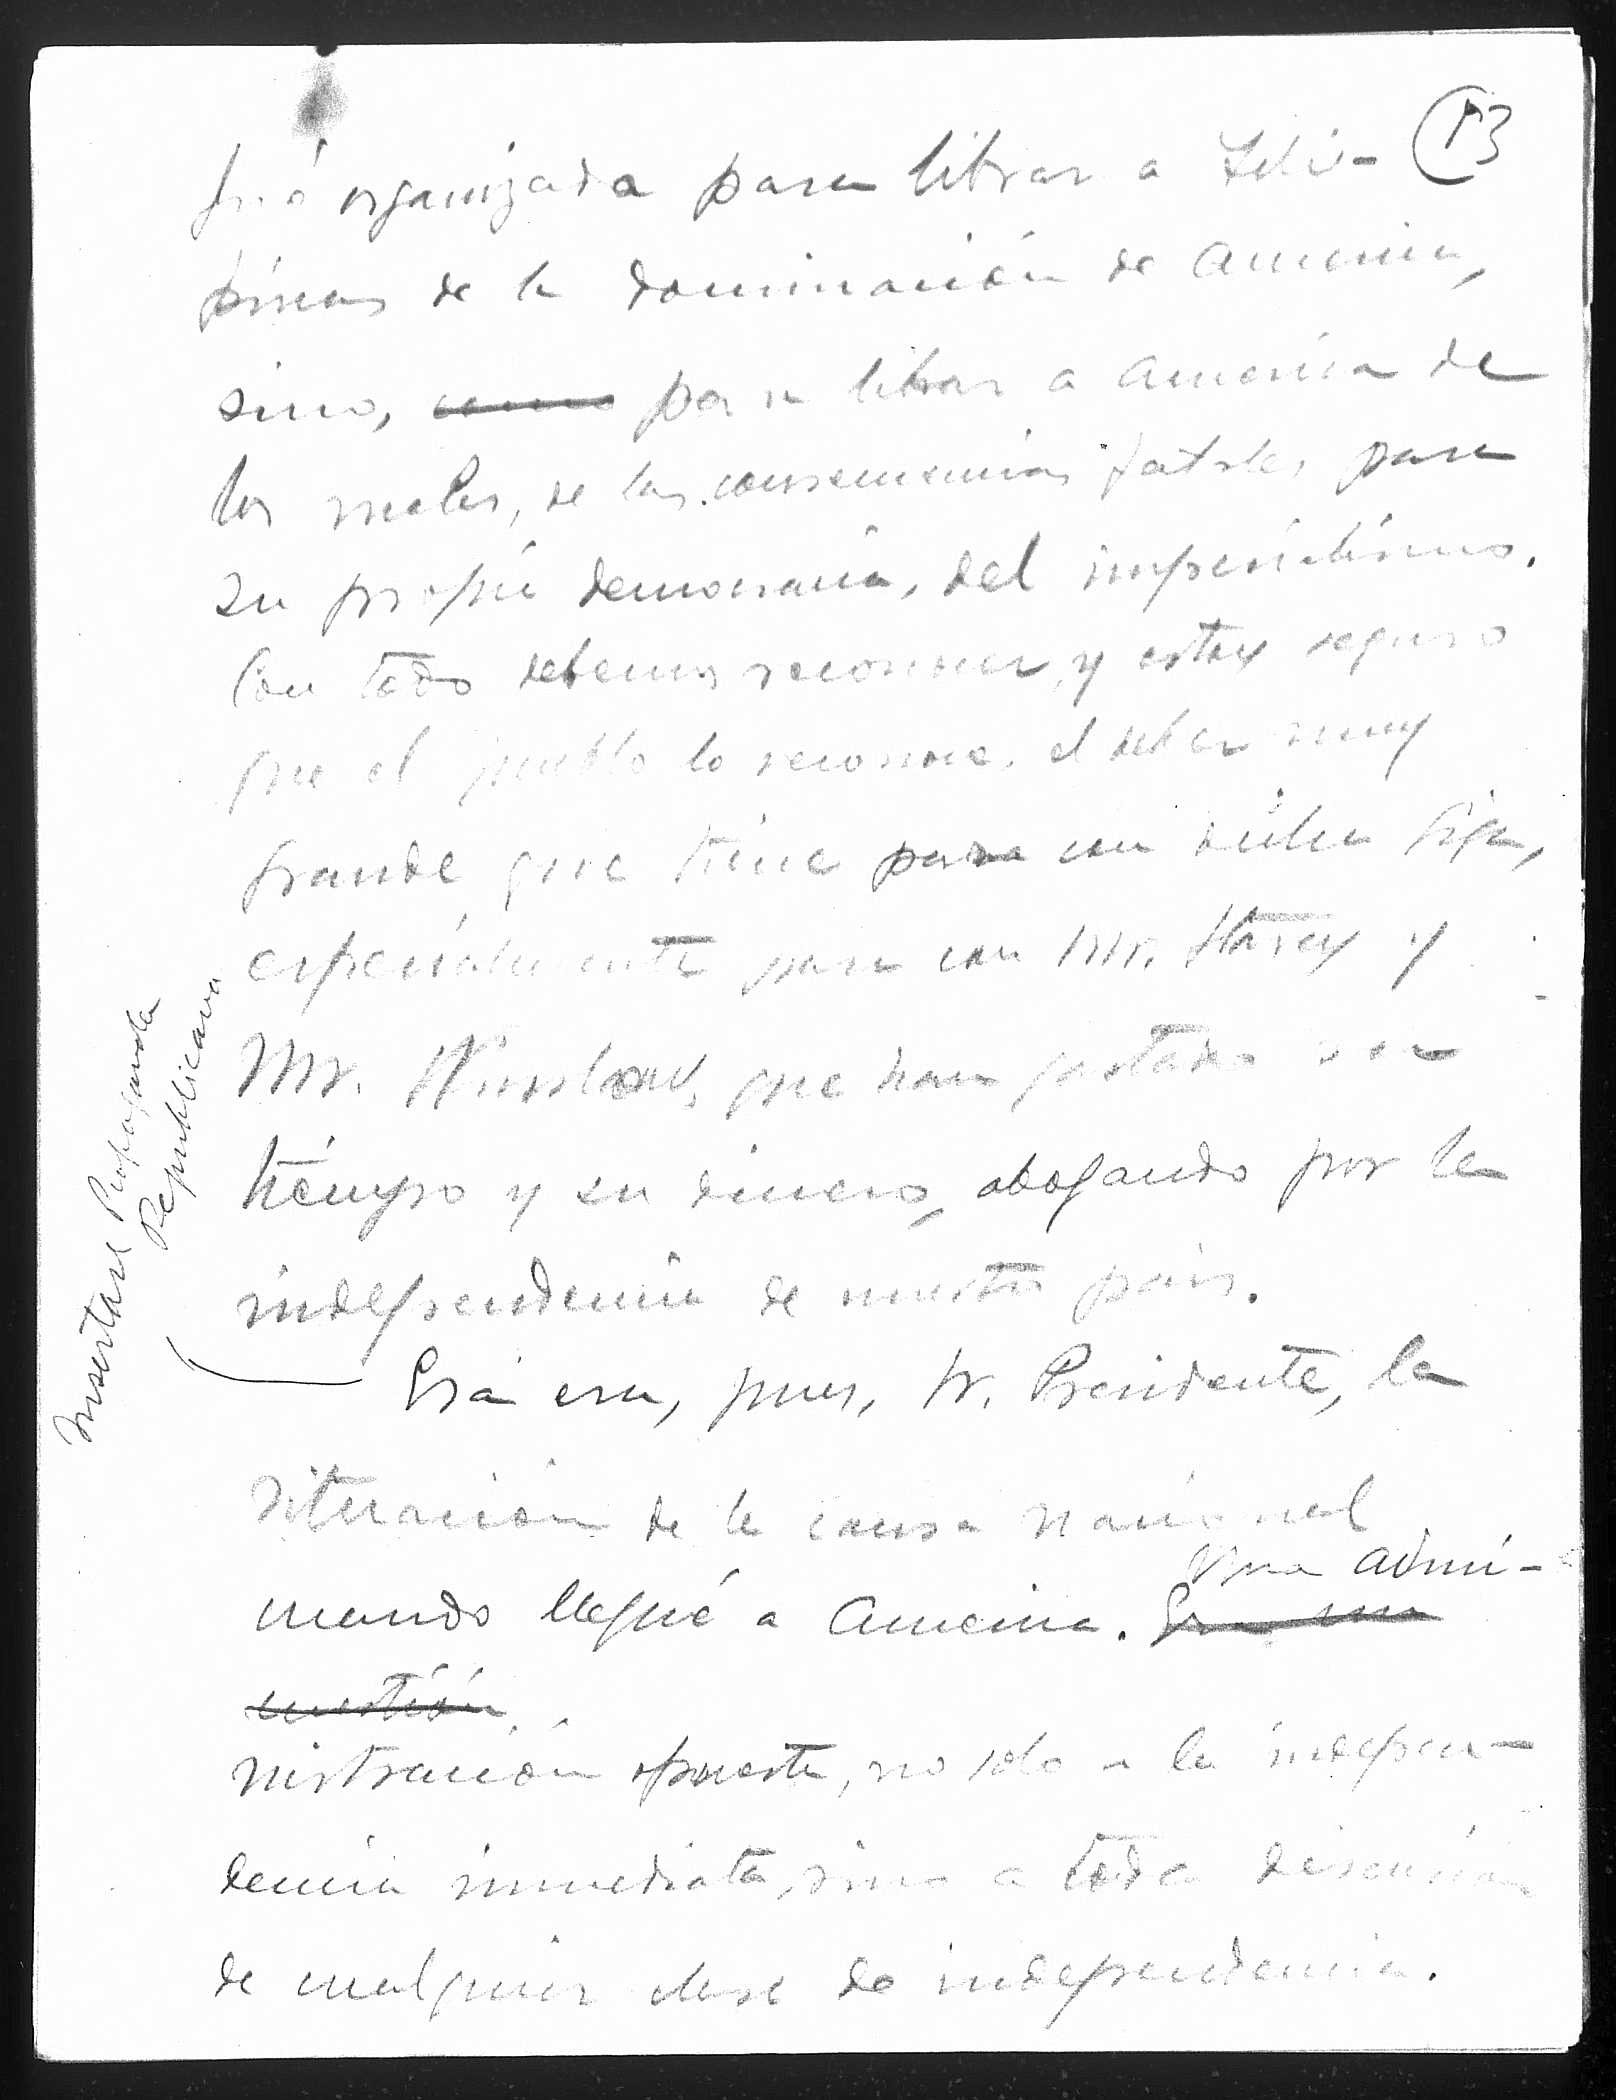 13
fué organizada para librar a Fili-
pinas de la dominación de America,
sino, como para librar a America de
los males, de las consecuencias fatales, para
su propia democracia, del imperialismo.
Con todo debemos reconocer, y estoy seguro
que el pueblo lo reconoce, el deber muy
grande que tiene para con dicha Liga,
especialmente para con Mr. Storey y
Mr. Winslow, que han gastado su
tiempo y su dinero, abogando por la
independencia de nuestro pais.
Insertase Propaganda
Republicana
Esa era, pues, Sr. Presidente, la
situación de la causa nacional
cuando llegué a America. Era una
Una admi-
cuestión
nistración opuesta, no solo a la indepen-
dencia inmediata, sino a toda discusión
de cualquier clase de independencia.